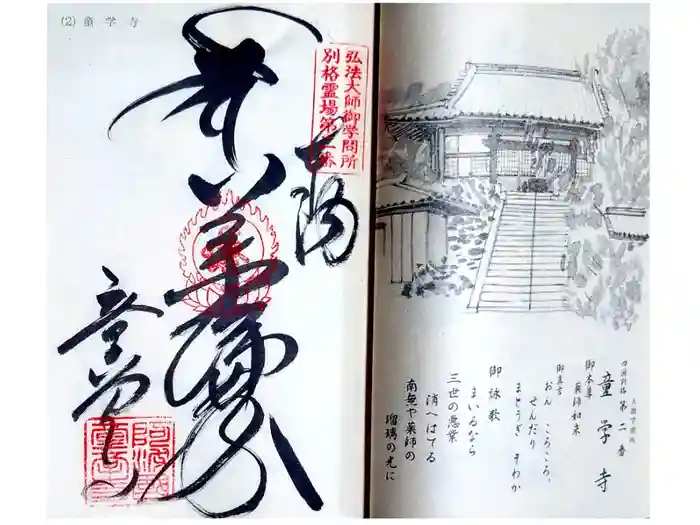 (2) 童学寺
弘法大師御学問所
別格霊場第二番
奉拝
童学寺
四国別格
第二番
童学寺
御本尊
薬師如来
御真言
おん ころころ、
せんだり
まとうぎ そわか
御詠歌
まいるなら
三世の悪業
消へはてる
南無や薬師の
瑠璃の光に